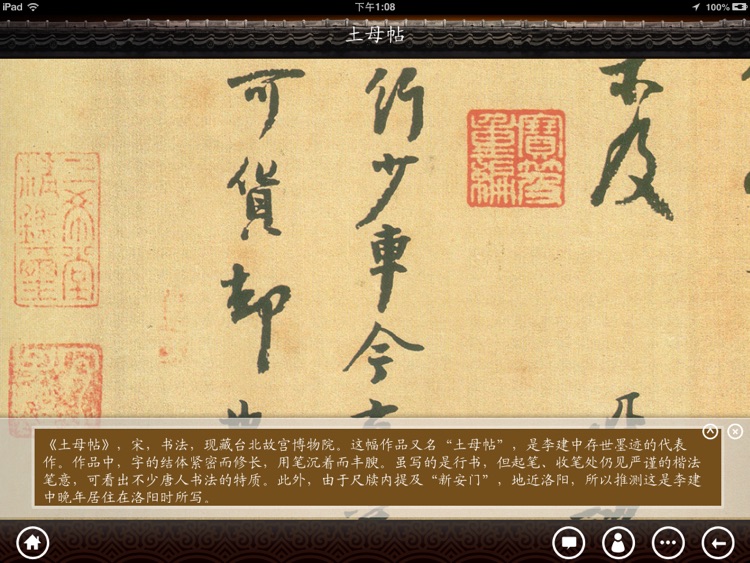 iPad
下午1:08
100%
土母帖
示及
行少車今
可貨却
寶笈
重編
三希堂
精鑑璽
《土母帖》，宋，书法，现藏台北故宫博物院。这幅作品又名“土母帖”，是李建中存世墨迹的代表
作。作品中，字的结体紧密而修长，用笔沉着而丰腴。虽写的是行书，但起笔、收笔处仍见严谨的楷法
笔意，可看出不少唐人书法的特质。此外，由于尺牍内提及“新安门”，地近洛阳，所以推测这是李建
中晚年居住在洛阳时所写。